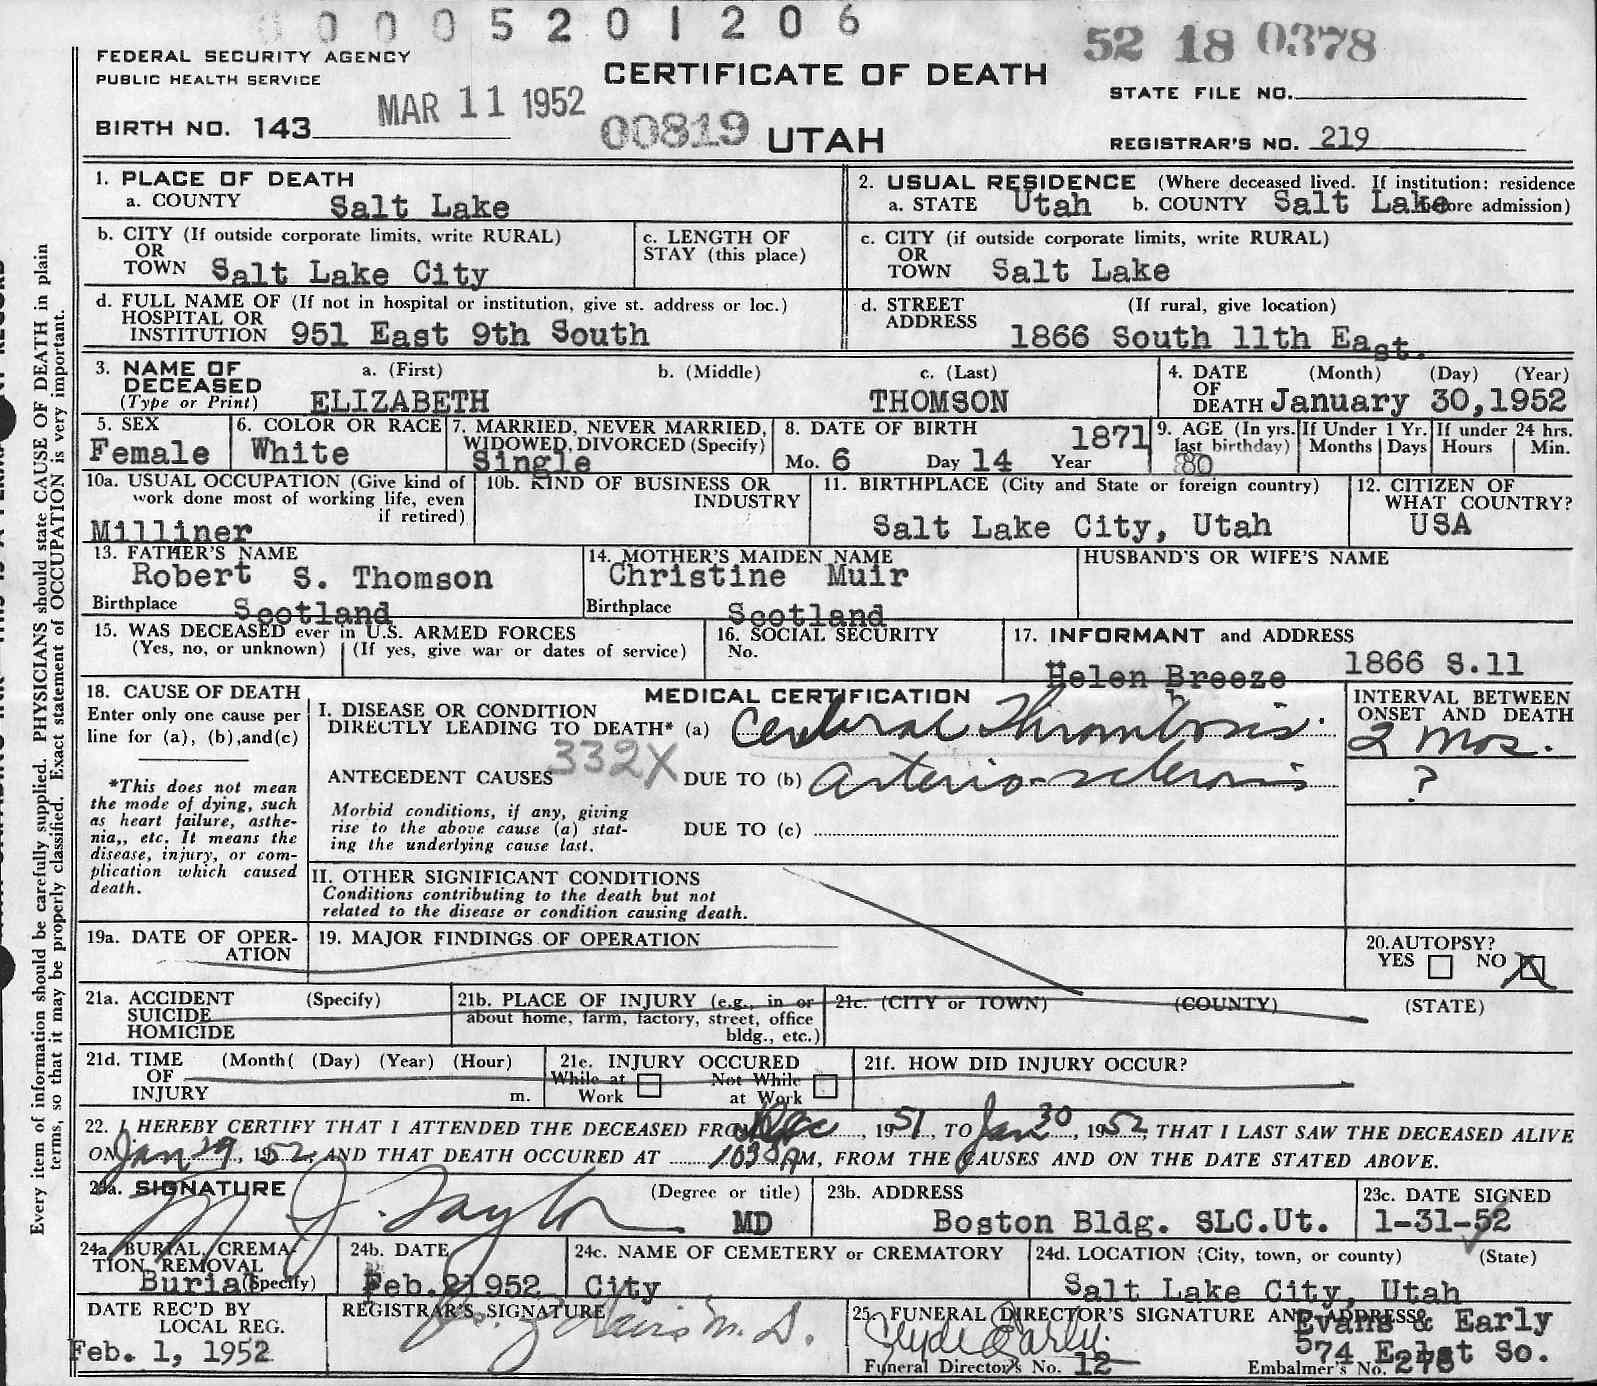 0 0 0 5 2 0 1 2 0 6
52 18 0378
FEDERAL SECURITY AGENCY
PUBLIC HEALTH SERVICE
CERTIFICATE OF DEATH
STATE FILE NO.
MAR 11 1952
BIRTH NO. 143
00819 UTAH
REGISTRAR'S NO. 219
1. PLACE OF DEATH
a. COUNTY Salt Lake
2. USUAL RESIDENCE (Where deceased lived. If institution: residence
a. STATE Utah b. COUNTY Salt Lake before admission)
b. CITY (If outside corporate limits, write RURAL)
OR
TOWN Salt Lake City
c. LENGTH OF
STAY (this place)
c. CITY (if outside corporate limits, write RURAL)
OR
TOWN Salt Lake
d. FULL NAME OF (If not in hospital or institution, give st. address or loc.)
HOSPITAL OR
INSTITUTION 951 East 9th South
d. STREET (If rural, give location)
ADDRESS
1866 South 11th East.
3. NAME OF
DECEASED
(Type or Print)
a. (First) b. (Middle) c. (Last)
ELIZABETH THOMSON
4. DATE (Month) (Day) (Year)
OF
DEATH January 30,1952
5. SEX
Female
6. COLOR OR RACE
White
7. MARRIED, NEVER MARRIED,
WIDOWED, DIVORCED (Specify)
Single
8. DATE OF BIRTH 1871
Mo. 6 Day 14 Year
9. AGE (In yrs.
last birthday)
80
If Under 1 Yr.
Months Days
If under 24 hrs.
Hours Min.
10a. USUAL OCCUPATION (Give kind of
work done most of working life, even
if retired)
Milliner
10b. KIND OF BUSINESS OR
INDUSTRY
11. BIRTHPLACE (City and State or foreign country)
Salt Lake City, Utah
12. CITIZEN OF
WHAT COUNTRY?
USA
13. FATHER'S NAME
Robert S. Thomson
Birthplace Scotland
14. MOTHER'S MAIDEN NAME
Christine Muir
Birthplace Scotland
HUSBAND'S OR WIFE'S NAME
15. WAS DECEASED ever in U.S. ARMED FORCES
(Yes, no, or unknown) (If yes, give war or dates of service)
16. SOCIAL SECURITY
No.
17. INFORMANT and ADDRESS
Helen Breeze 1866 S.11
18. CAUSE OF DEATH
Enter only one cause per
line for (a), (b),and(c)
*This does not mean
the mode of dying, such
as heart failure, asthe-
nia,, etc. It means the
disease, injury, or com-
plication which caused
death.
MEDICAL CERTIFICATION
I. DISEASE OR CONDITION
DIRECTLY LEADING TO DEATH* (a) Cerebral Thrombosis
332X
ANTECEDENT CAUSES DUE TO (b) arterio-sclerosis
Morbid conditions, if any, giving
rise to the above cause (a) stat-
ing the underlying cause last.
DUE TO (c)
INTERVAL BETWEEN
ONSET AND DEATH
2 mos.
?
II. OTHER SIGNIFICANT CONDITIONS
Conditions contributing to the death but not
related to the disease or condition causing death.
19a. DATE OF OPER-
ATION
19. MAJOR FINDINGS OF OPERATION
20.AUTOPSY?
YES NO X
21a. ACCIDENT (Specify)
SUICIDE
HOMICIDE
21b. PLACE OF INJURY (e.g., in or
about home, farm, factory, street, office
bldg., etc.)
21c. (CITY or TOWN) (COUNTY) (STATE)
21d. TIME (Month( (Day) (Year) (Hour)
OF
INJURY m.
21e. INJURY OCCURED
While at Not While
Work at Work
21f. HOW DID INJURY OCCUR?
22. I HEREBY CERTIFY THAT I ATTENDED THE DECEASED FROM Dec, 1951, TO Jan 30, 1952, THAT I LAST SAW THE DECEASED ALIVE
ON Jan 29, 1952, AND THAT DEATH OCCURED AT 1030 AM, FROM THE CAUSES AND ON THE DATE STATED ABOVE.
23a. SIGNATURE (Degree or title)
J. Taylor MD
23b. ADDRESS
Boston Bldg. SLC.Ut.
23c. DATE SIGNED
1-31-52
24a. BURIAL, CREMA-
TION, REMOVAL
Burial (Specify)
24b. DATE
Feb.21952
24c. NAME OF CEMETERY or CREMATORY
City
24d. LOCATION (City, town, or county) (State)
Salt Lake City, Utah
DATE REC'D BY
LOCAL REG.
Feb. 1, 1952
REGISTRAR'S SIGNATURE
M.D.
25. FUNERAL DIRECTOR'S SIGNATURE AND ADDRESS
Clyde Early Evans & Early
574 East 1st So.
Funeral Director's No. 12 Embalmer's No. 276
Every item of information should be carefully supplied. PHYSICIANS should state CAUSE OF DEATH in plain
terms, so that it may be properly classified. Exact statement of OCCUPATION is very important.